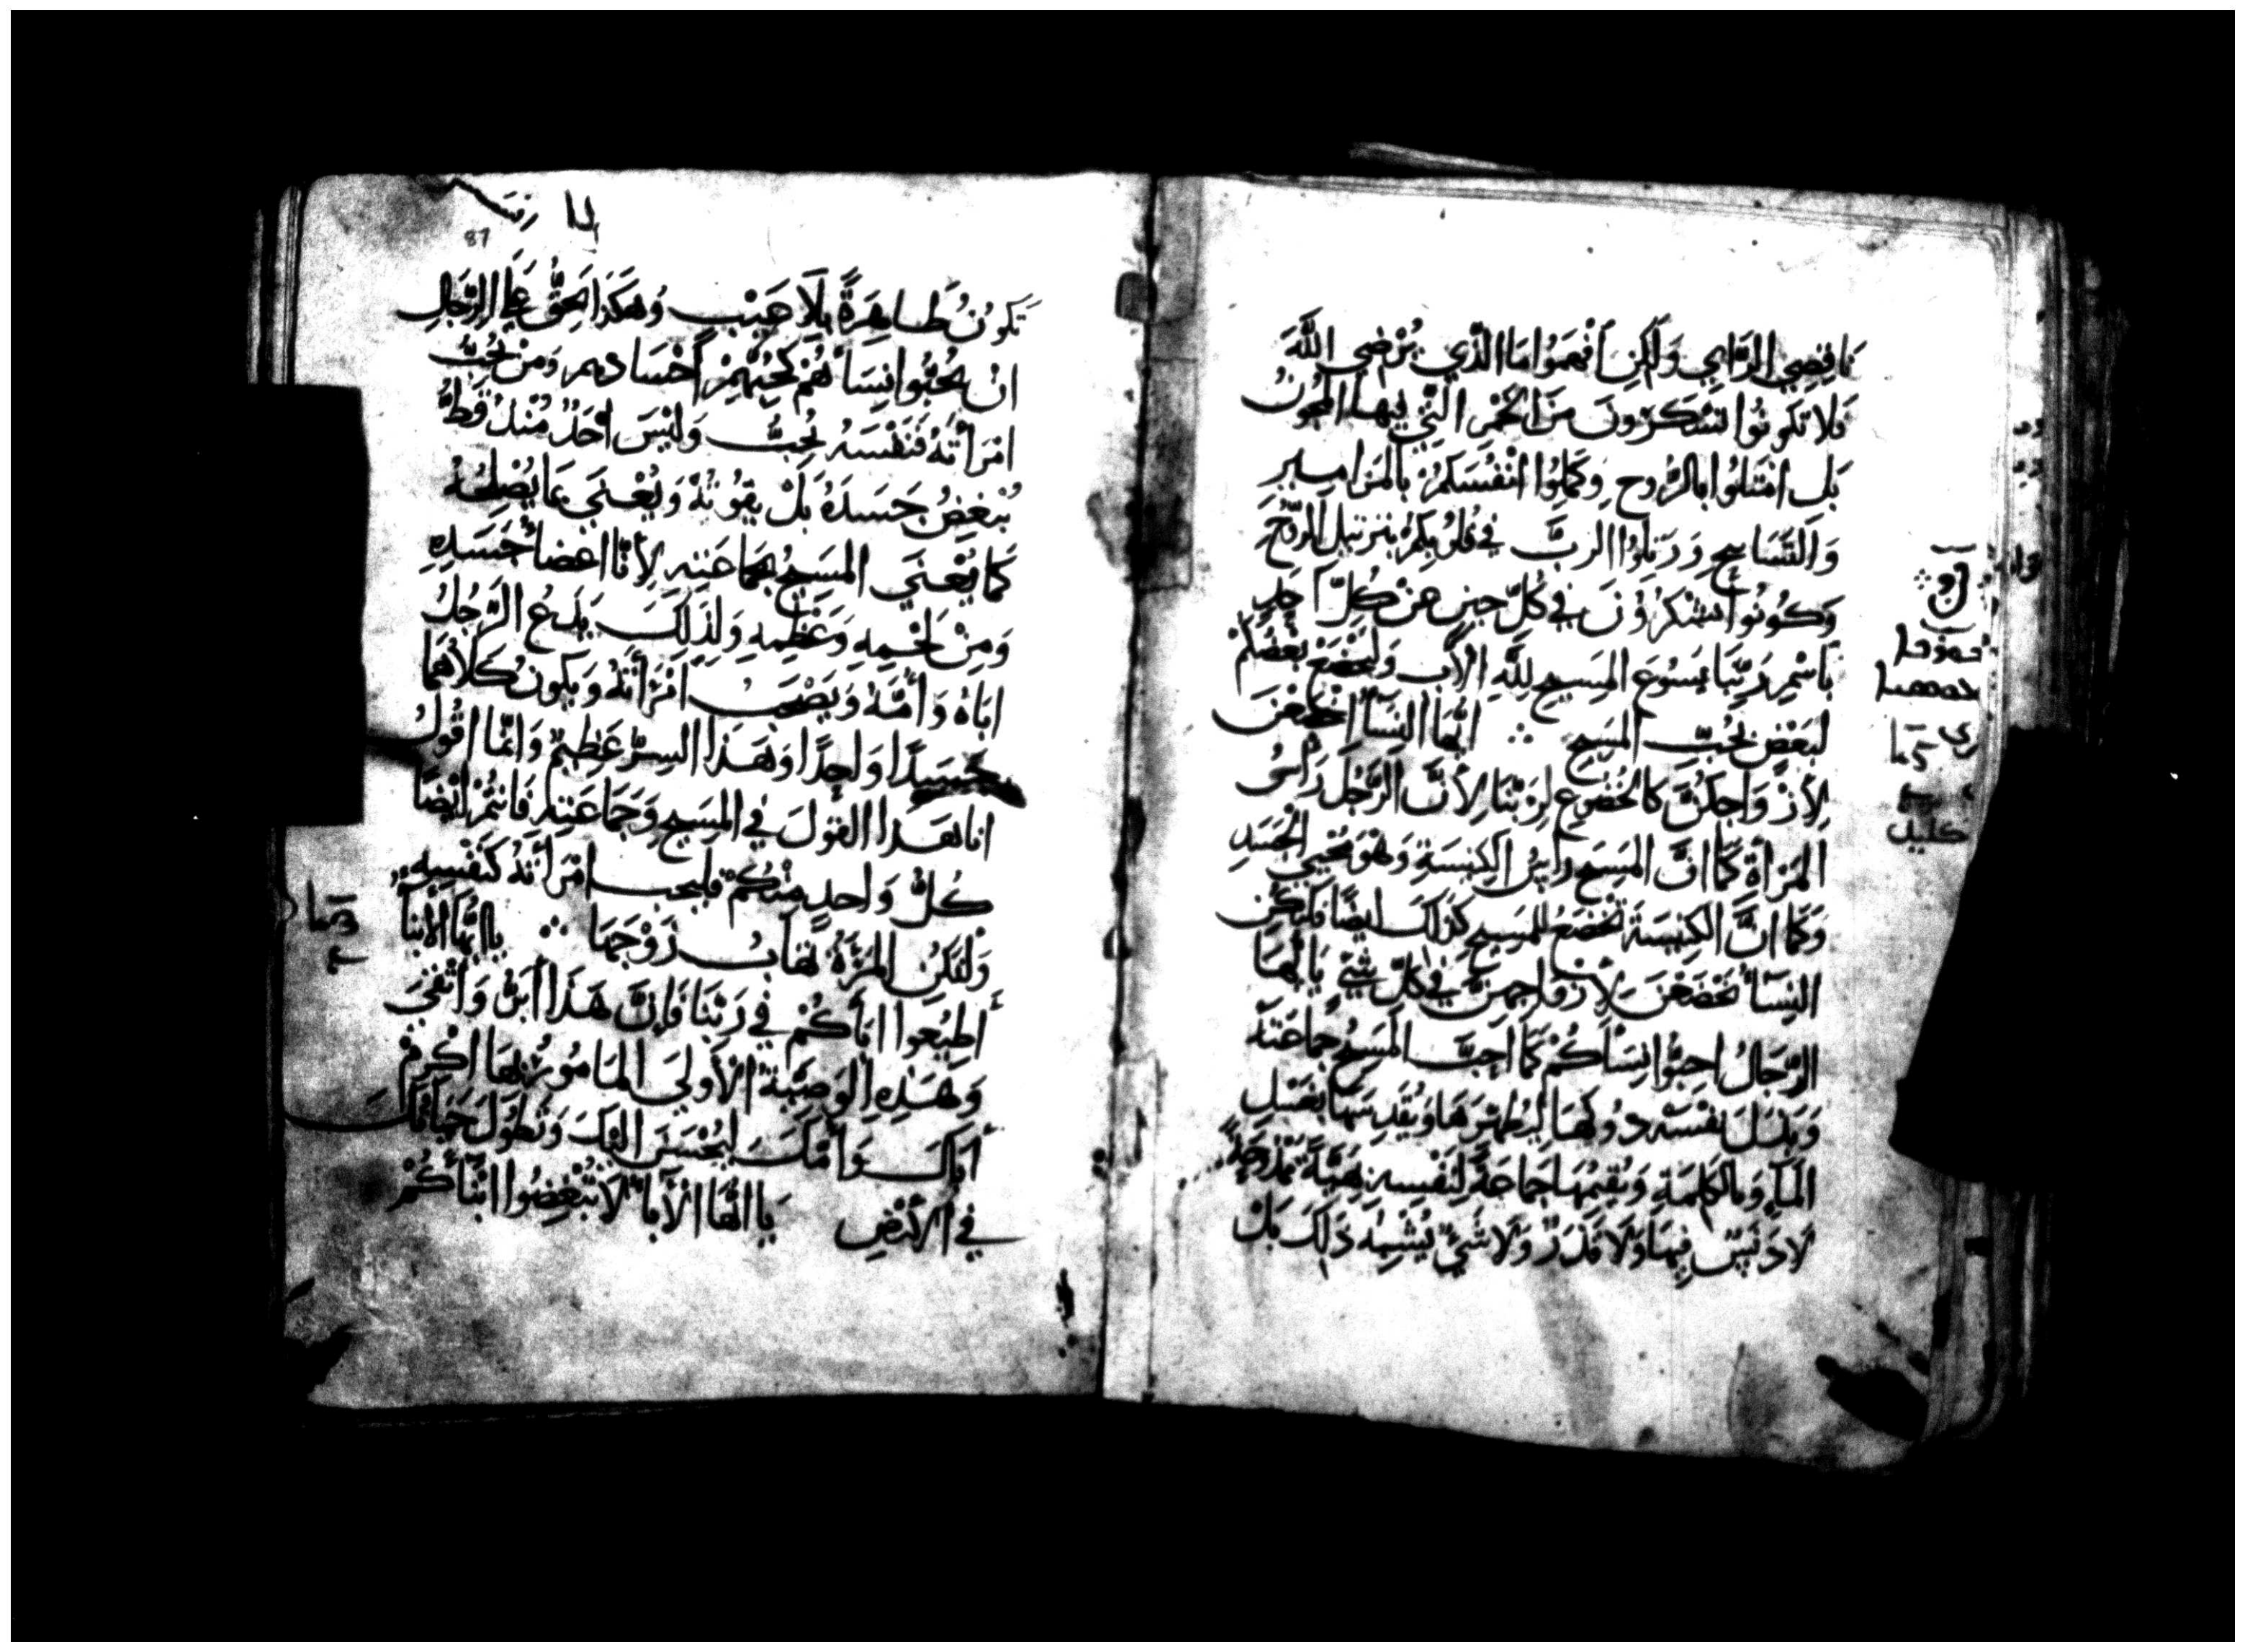 نَاقِصِي الرَّايِ وَلَكِنِ افْهَمُوا مَا الَّذِي يُرْضِي اللَّهَ
فَلَا تَكُونُوا تَسْكَرُونَ مِنَ الخَمْرِ الَّتِي فِيهَا المُجُونُ
بَل امْتَلُوا بِالرُّوحِ وَكَلِّمُوا انْفُسَكُمْ بِالمَزَامِيرِ
وَالتَّسَابِيحِ وَرَتِّلُوا الرَبَّ فِي قُلُوبِكُمْ بِتَرْتِيلِ الرُّوحِ
وَكُونُوا تَشْكُرُونَ فِي كُلِّ حِينٍ عَنْ كُلِّ احَدٍ
بِاسْمِ رَبِّنَا يَسُوعَ المَسِيحِ لِلَّهِ الاَبِ وَلْيَخْضَعْ بَعْضُكُمْ
لِبَعْضٍ بِحُبِّ المَسِيحِ ايُّهَا النِسَا اخْضَعْنَ
لِأَزْوَاجِكُنَّ كَالخُضُوعِ لِرَبِّنَا لِأَنَّ الرَّجُلَ رَاسُ
المَرْأَةِ كَمَا انَّ المَسِيحَ رَاسُ الكَنِيسَةِ وَهُوَ مُحْيِي الجَسَدِ
وَكَمَا انَّ الكَنِيسَةَ تَخْضَعُ لِلمَسِيحِ كَذَلِكَ ايضًا فَلْيَكُنِ
النِسَأُ تَخْضَعْنَ لِأَزْوَاجِهِنَّ فِي كُلِّ شَيٍّ يَا ايُّهَا
الرِّجَالُ احِبُّوا نِسَأَكُمْ كَمَا احَبَّ المَسِيحُ جَمَاعَتَهُ
وَبَذَلَ نَفْسَهُ دُونَهَا لِيُطَهِّرَهَا وَيُقَدِّسَهَا بِغَسْلِ
المَا وَبِالكَلِمَةِ وَيُقِيمُهَا جَمَاعَةً لِنَفْسِهِ بَهِيَّةً مَمْدُوحَةً
لَا دَنَسٌ فِيهَا وَلَا قَذَرٌ وَلَا شَيٌّ يُشْبِهُ ذَلِكَ بَلْ
87
تَكُونُ طَاهِرَةً بِلَا عَيْبٍ وَهَكَذَا يَحِقُّ عَلَى الرِّجَالِ
انْ يُحِبُّوا نِسَأَهُمْ كَحُبِّهِمْ اجْسَادهم وَمَنْ يُحِبُّ
امْرَأَتَهُ فَنَفْسَهُ يُحِبُّ وَلَيْسَ احَدٌ مُنْذُ قَطُّ
يُبْغِضُ جَسَدَهُ بَلْ يَقُوتُهُ وَيُعْنَى بِمَا يُصْلِحُهُ
كَمَا يُعْنَى المَسِيحُ بِجَمَاعَتِهِ لِأَنَّا اعْضَأُ جَسَدِهِ
وَمِنْ لَحْمِهِ وَعَظْمِهِ وَلِذَلِكَ يَدَعُ الرَّجُلُ
ابَاهُ وَأُمَّهُ وَيَصْحَبُ امْرَأَتَهُ وَيَكُونُ كِلَاهُمَا
جَسَدًا وَاحِدًا وَهَذَا السِرُّ عَظِيمٌ وَانَّمَا اقُولُ
انَا هَذَا القَوْلَ فِي المَسِيحِ وَجَمَاعَتِهِ فَانْتُمْ ايْضًا
كُلُّ وَاحِدٍ مِنْكُمْ فَلْيُحِب امْرَأَتَهُ كَنَفْسِهِ
وَلْتَكُنِ المَرْأَةُ تَهَابُ زَوْجَهَا يَا ايُّهَا الابْنَأُ
أَطِيعُوا ابَأَكُمْ فِي رَبِّنَا فَإِنَّ هَذَا
وَهَذِهِ الوَصِيَّةُ الاُولَى المَامُورُ بِهَا اكْرِمْ
أَبَاكَ وَأُمَّكَ لِيُحْسَنَ الَيْكَ وَتَطُولَ حَيَاتُكَ
فِي الاَرْضِ يَا ايُّهَا الاَبَأُ لَا تُبْغِضُوا ابْنَأَكُمْ